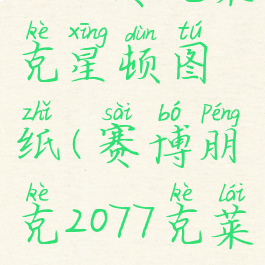 kè xīng dùn tú
克星顿图
zhǐ sài bó Péng
纸(赛博朋
kè kè lái
克2077克莱